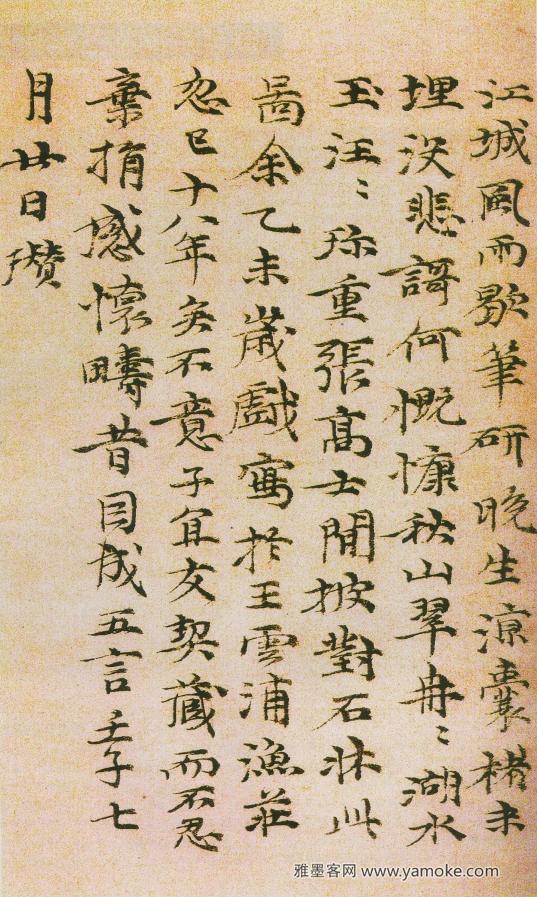 江城風雨歇筆研晚生涼囊楮未
埋没悲謌何慨慷秋山翠冉〻湖水
玉汪〻珎重張高士閒披對石牀此
啚余乙未歲戲寫於王雲浦漁莊
忽已十八年矣不意子宜友契藏而不忍
棄捐感懷疇昔因成五言壬子七
月廿日瓚
雅墨客网 www.yamoke.com